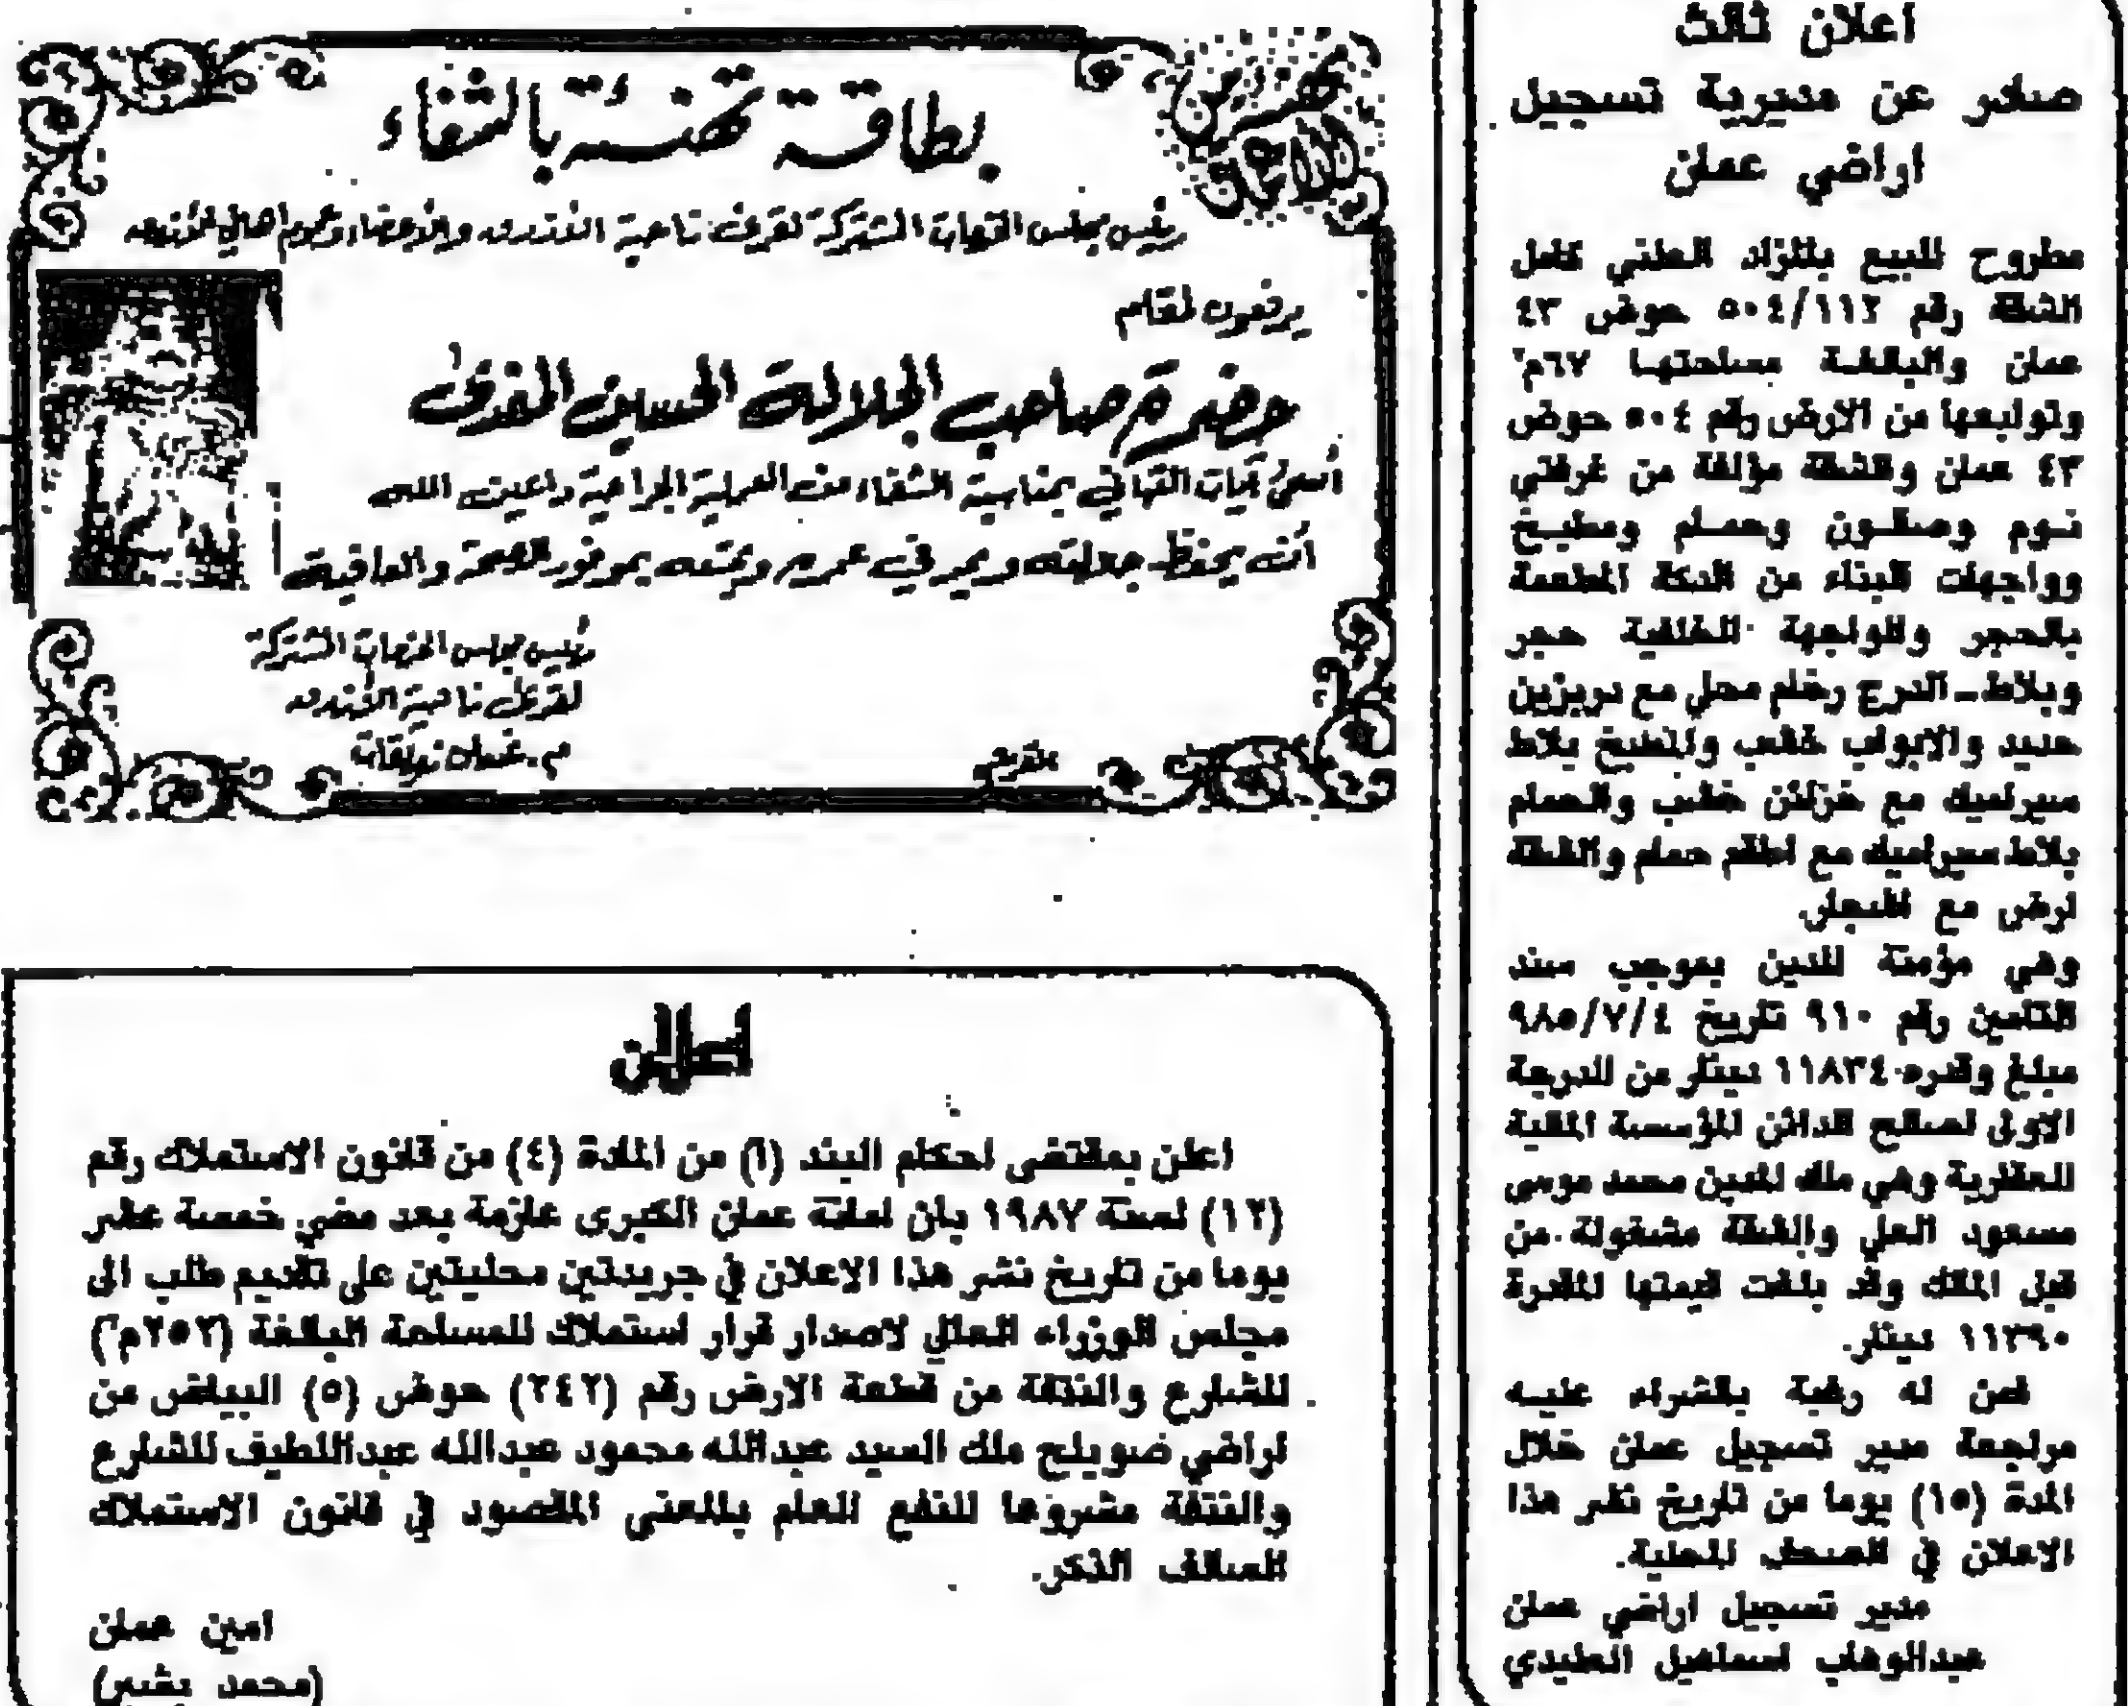 اعلان ثالث
صادر عن مديرية تسجيل
اراضي عمان
مطروح للبيع بالمزاد العلني كامل
الشقة رقم ٥٠٤/١١٢ حوض ٤٣
عمان والبالغة مساحتها ٦٧م٢
وتوابعها من الارض رقم ٥٠٤ حوض
٤٣ عمان والشقة مؤلفة من غرفتي
نوم وصالون وحمام ومطبخ
وواجهات البناء من الدكة المطعمة
بالحجر والواجهة الخلفية حجر
وبلاط ـ الدرج رخام محلي مع دربزين
حديد والابواب خشب والمطبخ بلاط
سيراميك مع خزائن خشب والحمام
بلاط سيراميك مع اطقم حمام والشقة
ارض مع
وهي مؤمنة للدين بموجب سند
التامين رقم ٩١٠ تاريخ ٩٨٥/٧/٤
مبلغ وقدره ١١٨٣٤ دينار من الدرجة
الاولى لصالح الدائن المؤسسة المالية
العقارية وهي ملك المدين محمد موسى
مسعود العلي والشقة مشغولة من
قبل المالك وقد بلغت قيمتها المقدرة
١١٣٩٠ دينار.
فمن له رغبة بالشراء عليه
مراجعة مدير تسجيل عمان خلال
المدة (١٥) يوما من تاريخ نشر هذا
الاعلان في الصحف المحلية.
مدير تسجيل اراضي عمان
عبدالوهاب اسماعيل
بطاقة تهنئة بالشفاء
رئيس مجلس الخدمات المشتركة لقرى ناحية الأزرق والأعضاء وعموم أهالي الأزرق
يرفعون لمقام
حضرة صاحب الجلالة الحسين المفدى
أسمى آيات التهاني بمناسبة الشفاء من العملية الجراحية داعين الله
أن يحفظ جلالته ويمد في عمره ويمتعه بموفور الصحة والعافية
رئيس مجلس الخدمات المشتركة
لقرى ناحية الأزرق
اعلان
اعلن بمقتضى احكام البند (أ) من المادة (٤) من قانون الاستملاك رقم
(١٢) لسنة ١٩٨٧ بان امانة عمان الكبرى عازمة بعد مضي خمسة عشر
يوما من تاريخ نشر هذا الاعلان في جريدتين محليتين على تقديم طلب الى
مجلس الوزراء العالي لاصدار قرار استملاك للمساحة البالغة (٢٥٢م٢)
للشارع والنتفة من قطعة الارض رقم (٢٤٢) حوض (٥) البياض من
اراضي صويلح ملك السيد عبدالله محمود عبدالله عبداللطيف للشارع
والنتفة مشروعا للنفع العام بالمعنى المقصود في قانون الاستملاك
السالف الذكر.
امين عمان
(محمد بشير)